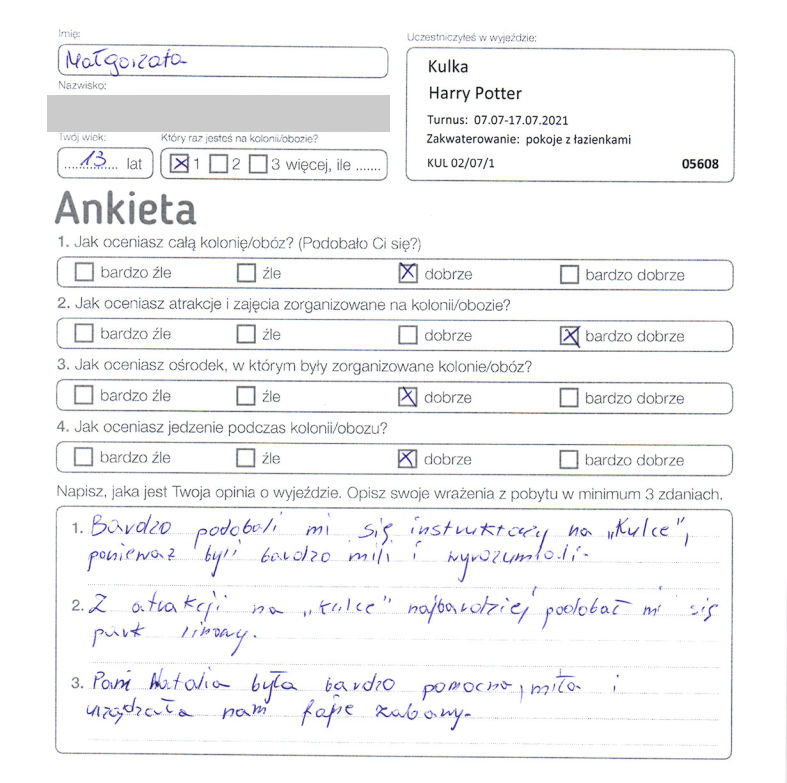 Imię:
Małgorzata
Nazwisko:
Twój wiek:
13 lat
Który raz jesteś na kolonii/obozie?
1 2 3 więcej, ile .......
Uczestniczyłeś w wyjeździe:
Kulka
Harry Potter
Turnus: 07.07-17.07.2021
Zakwaterowanie: pokoje z łazienkami
KUL 02/07/1 05608
Ankieta
1. Jak oceniasz całą kolonię/obóz? (Podobało Ci się?)
bardzo źle źle dobrze bardzo dobrze
2. Jak oceniasz atrakcje i zajęcia zorganizowane na kolonii/obozie?
bardzo źle źle dobrze bardzo dobrze
3. Jak oceniasz ośrodek, w którym były zorganizowane kolonie/obóz?
bardzo źle źle dobrze bardzo dobrze
4. Jak oceniasz jedzenie podczas kolonii/obozu?
bardzo źle źle dobrze bardzo dobrze
Napisz, jaka jest Twoja opinia o wyjeździe. Opisz swoje wrażenia z pobytu w minimum 3 zdaniach.
1. Bardzo podobali mi się instruktorzy na „Kulce",
ponieważ byli bardzo mili i wyrozumiali.
2. Z atrakcji na „Kulce" najbardziej podobał mi się
park linowy.
3. Pani Natalia była bardzo pomocna, miła i
urządzała nam fajne zabawy.